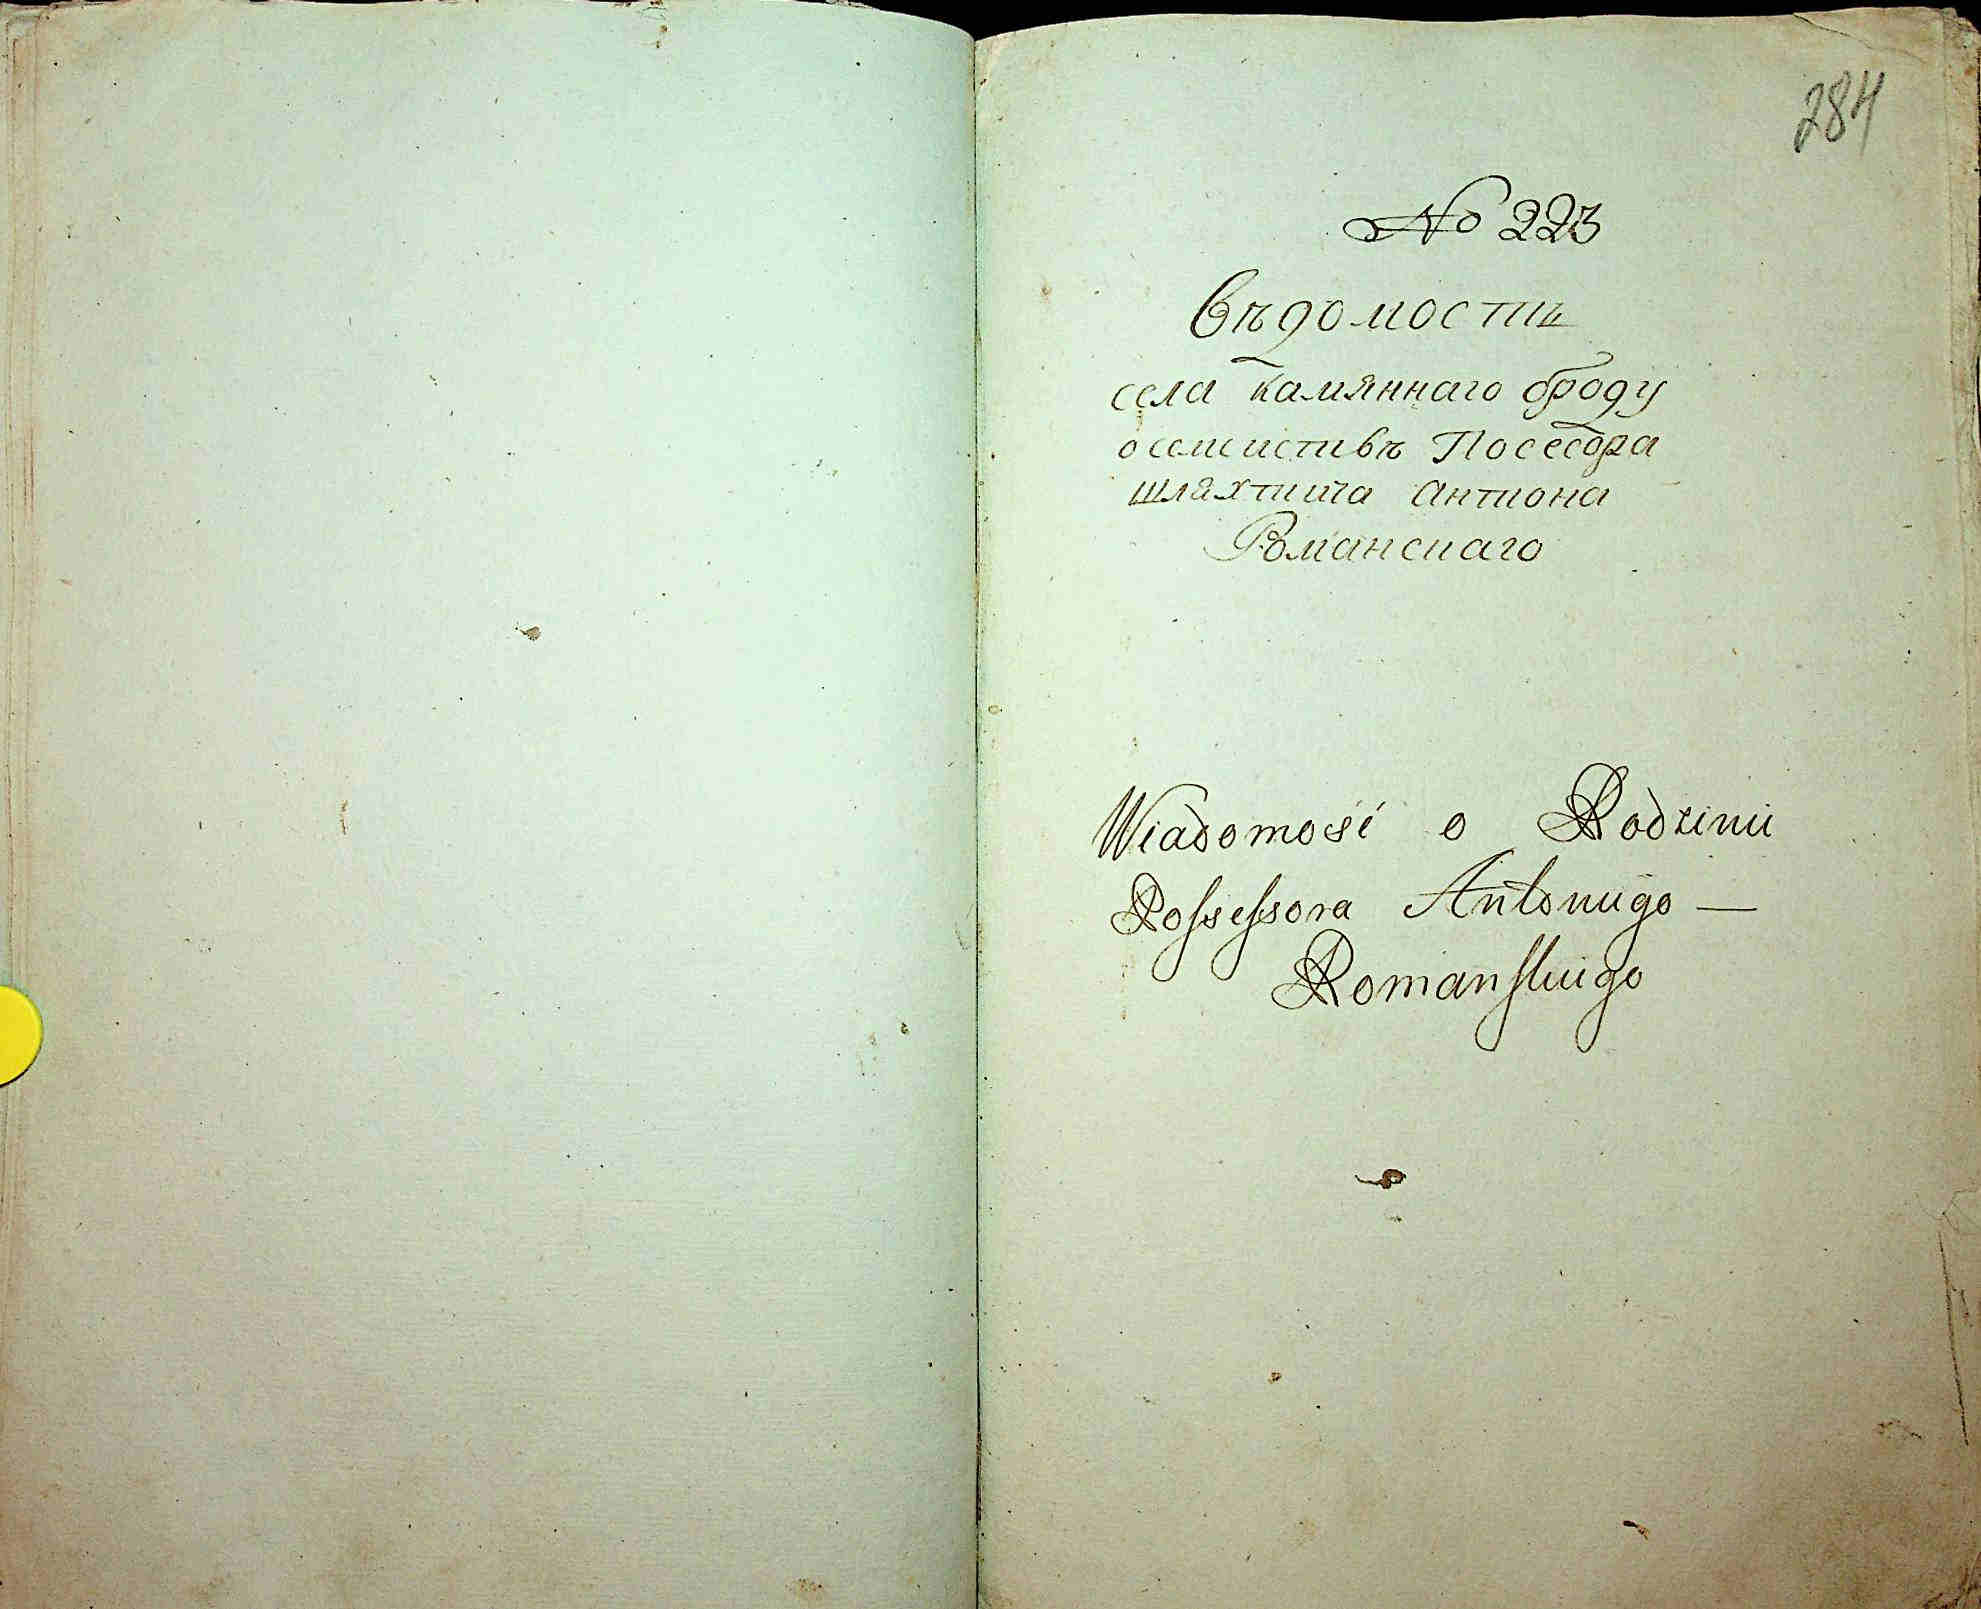 284
No 223
Ведомость
села камяннаго броду
о семействе Посесора
шляхтича Антона
Романскаго
Wiadomość o Rodzinie
Possessora Antoniego —
Romanskiego